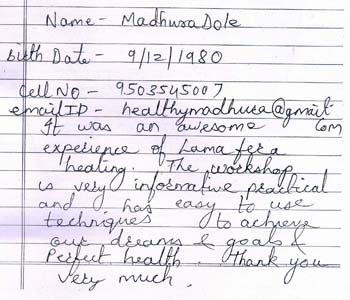 Name - Madhura Dole
Birth Date - 9/12/1980
Cell No - 9503545007
email ID - healthymadhura@gmail
com
It was an awesome
experience of Lama fera
healing. The workshop
is very informative practical
and has easy to use
techniques to achieve
our dreams & goals &
Perfect health. Thank you
very much.